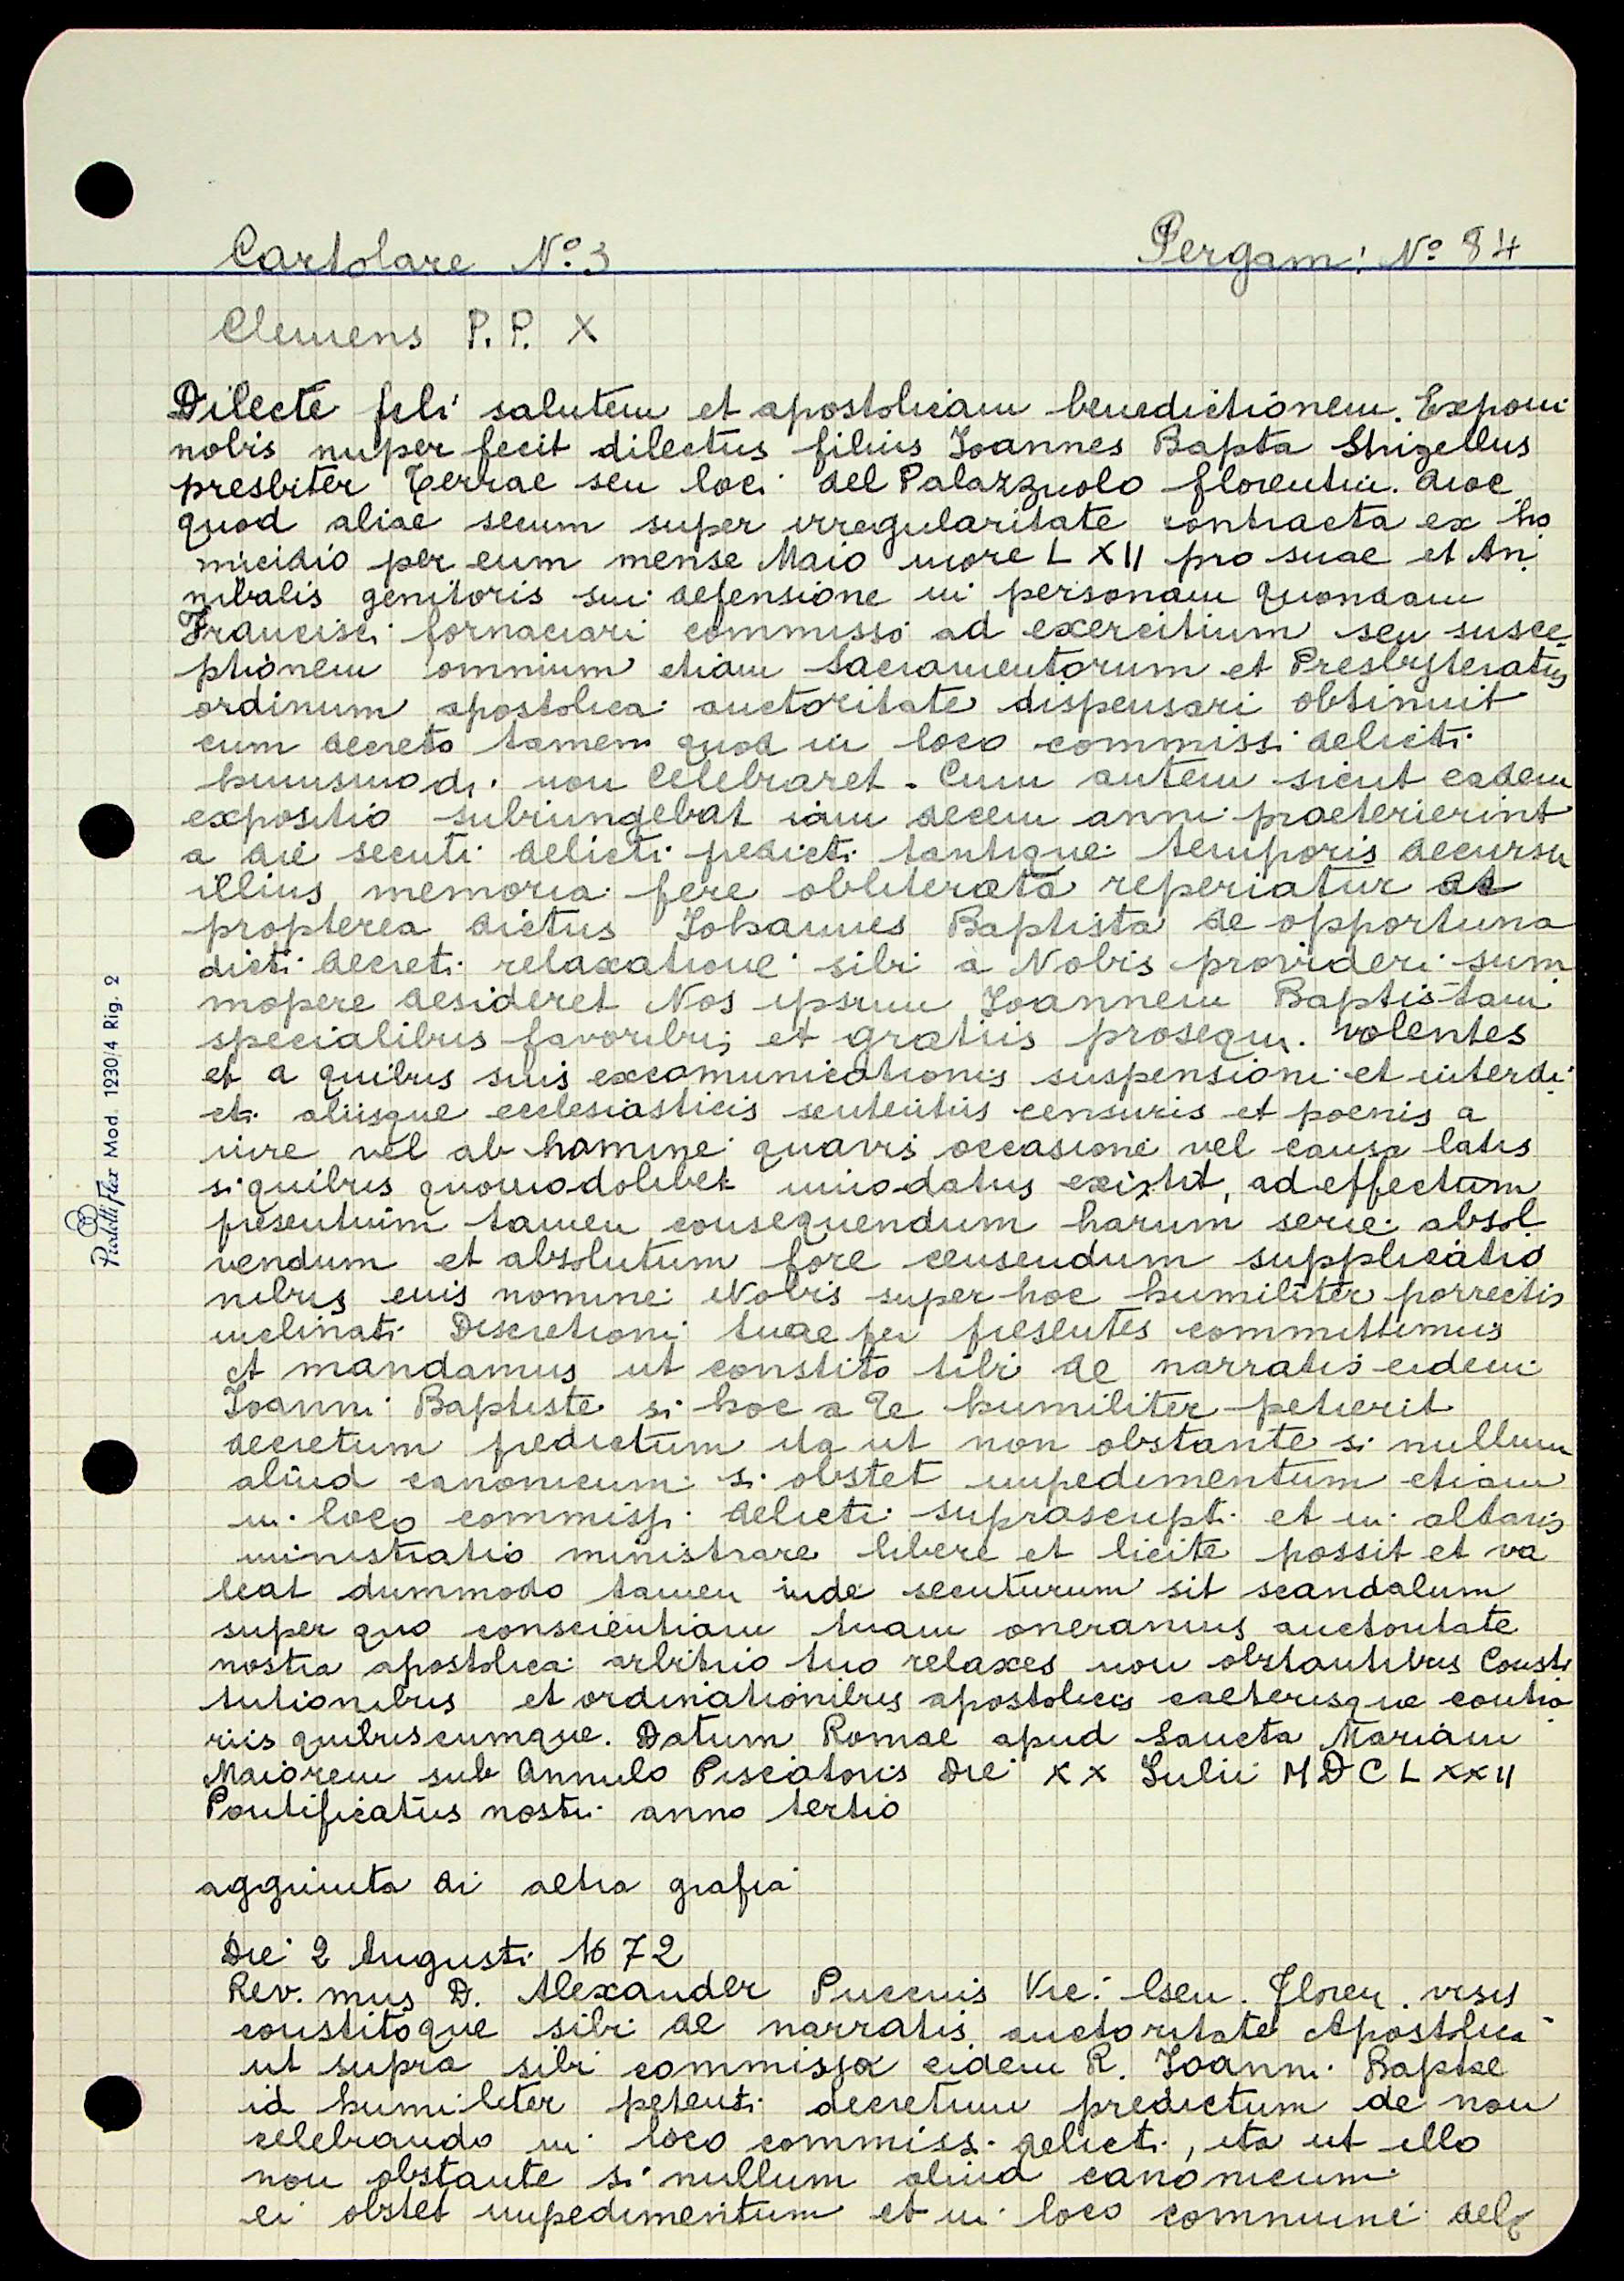 Cartolare N° 3
Pergam: N° 84
Clemens P. P. X
Dilecte fili salutem et apostolicam benedictionem. Exponi
nobis nuper fecit dilectus filius Joannes Bapta Strigellus
presbiter Terrae seu loci del Palazzuolo florentin. dioc
quod alias secum super irregularitate contracta ex ho
micidio per eum mense Maio more L XII pro suae et An
nibalis genitoris sui defensione in personam quondam
Francisci fornaciari commisso ad exercitium seu susce
ptionem omnium etiam sacramentorum et Presbyteratus
ordinum apostolica auctoritate dispensari obtinuit
cum decreto tamen quod in loco commissi delicti
huiusmodi non celebraret. Cum autem sicut eadem
expositio subiungebat iam decem anni praeterierint
a die secuti delicti predicti tantique temporis decursu
illius memoria fere obliterata reperiatur ac
propterea dictus Johannes Baptista de opportuna
dicti decreti relaxatione sibi a Nobis provideri sum
mopere desideret Nos ipsum Joannem Baptistam
specialibus favoribus et gratiis prosequi volentes
et a quibus suis excomunicationis suspensioni et interdi
cti aliisque ecclesiasticis sententiis censuris et poenis a
iure vel ab homine quavis occasione vel causa latis
si quibus quomodolibet innodatus existit, ad effectum
presentuim tamen consequendum harum serie absol
vendum et absolutum fore censendum supplicatio
nibus euis nomine Nobis super hoc humiliter porrectis
inclinati Discretioni tuae per presentes committimus
et mandamus ut constito tibi de narratis eidem
Joanni Baptiste si hoc a Te humiliter petierit
decretum predictum ita ut non obstante si nullum
aliud canonicum si obstet impedimentum etiam
in loco commissi delicti suprascripti et in altaris
ministratio ministrare libere et licite possit et va
leat dummodo tamen inde secuturum sit scandalum
super quo conscientiam tuam oneramus auctoritate
nostra apostolica arbitrio tuo relaxes non obstantibus Consti
tutionibus et ordinationibus apostolicis caeterisque contra
riis quibuscumque. Datum Romae apud Sancta Mariam
Maiorem sub Annulo Piscatoris Die XX Julii MDCLXXII
Pontificatus nostri anno tertio
aggiunta di altra grafia
Die 2 Augusti 1672
Rev. mus D. Alexander Puccius Vic. Floren. visis
constitoque sibi de narratis auctoritate Apostolica
ut supra sibi commissa eidem R. Joanni Baptae
id humiliter petenti decretum predictum de non
celebrando in loco commissi delicti, ita ut illo
non obstante si nullum aliud canonicum
ei obstet impedimentum et in loco communi
PaolettiFlex Mod. 1230/4 Rig. 2